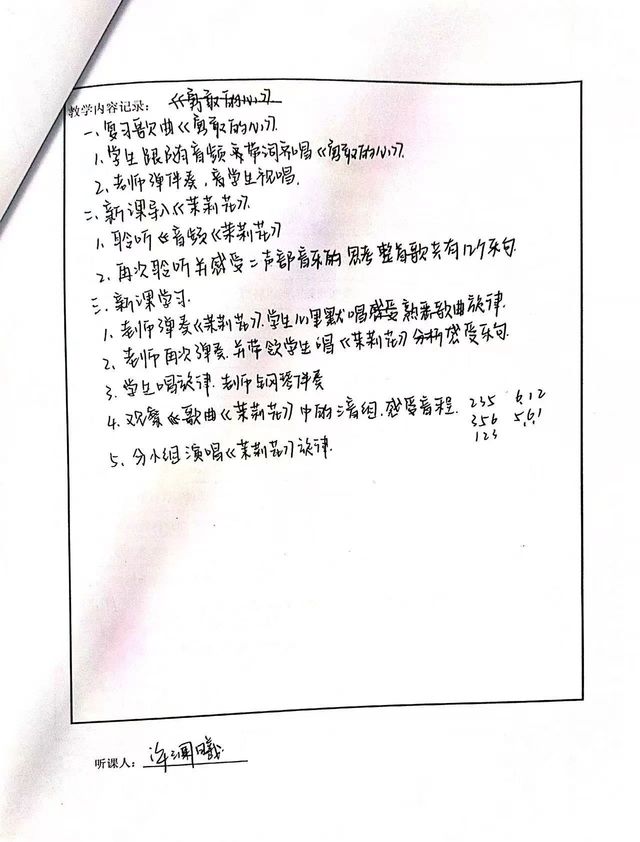 教学内容记录：《勇敢的心》
一、复习歌曲《勇敢的心》.
1. 学生跟随音频带词齐唱《勇敢的心》.
2. 老师弹伴奏，学生视唱.
二、新课导入《茉莉花》.
1. 聆听《音频《茉莉花》
2. 再次聆听并感受二声部音乐的思考整首歌共有12个乐句.
三、新课学习.
1. 老师弹奏《茉莉花》.学生心里默唱感受熟悉歌曲旋律.
2. 老师再次弹奏.并带领学生唱《茉莉花》分析感受乐句.
3. 学生唱旋律.老师钢琴伴奏
4. 观察《歌曲《茉莉花》中的三音组.感受音程. 235 6̣12
356 5̣6̣1
123
5. 分小组演唱《茉莉花》旋律.
听课人：曦